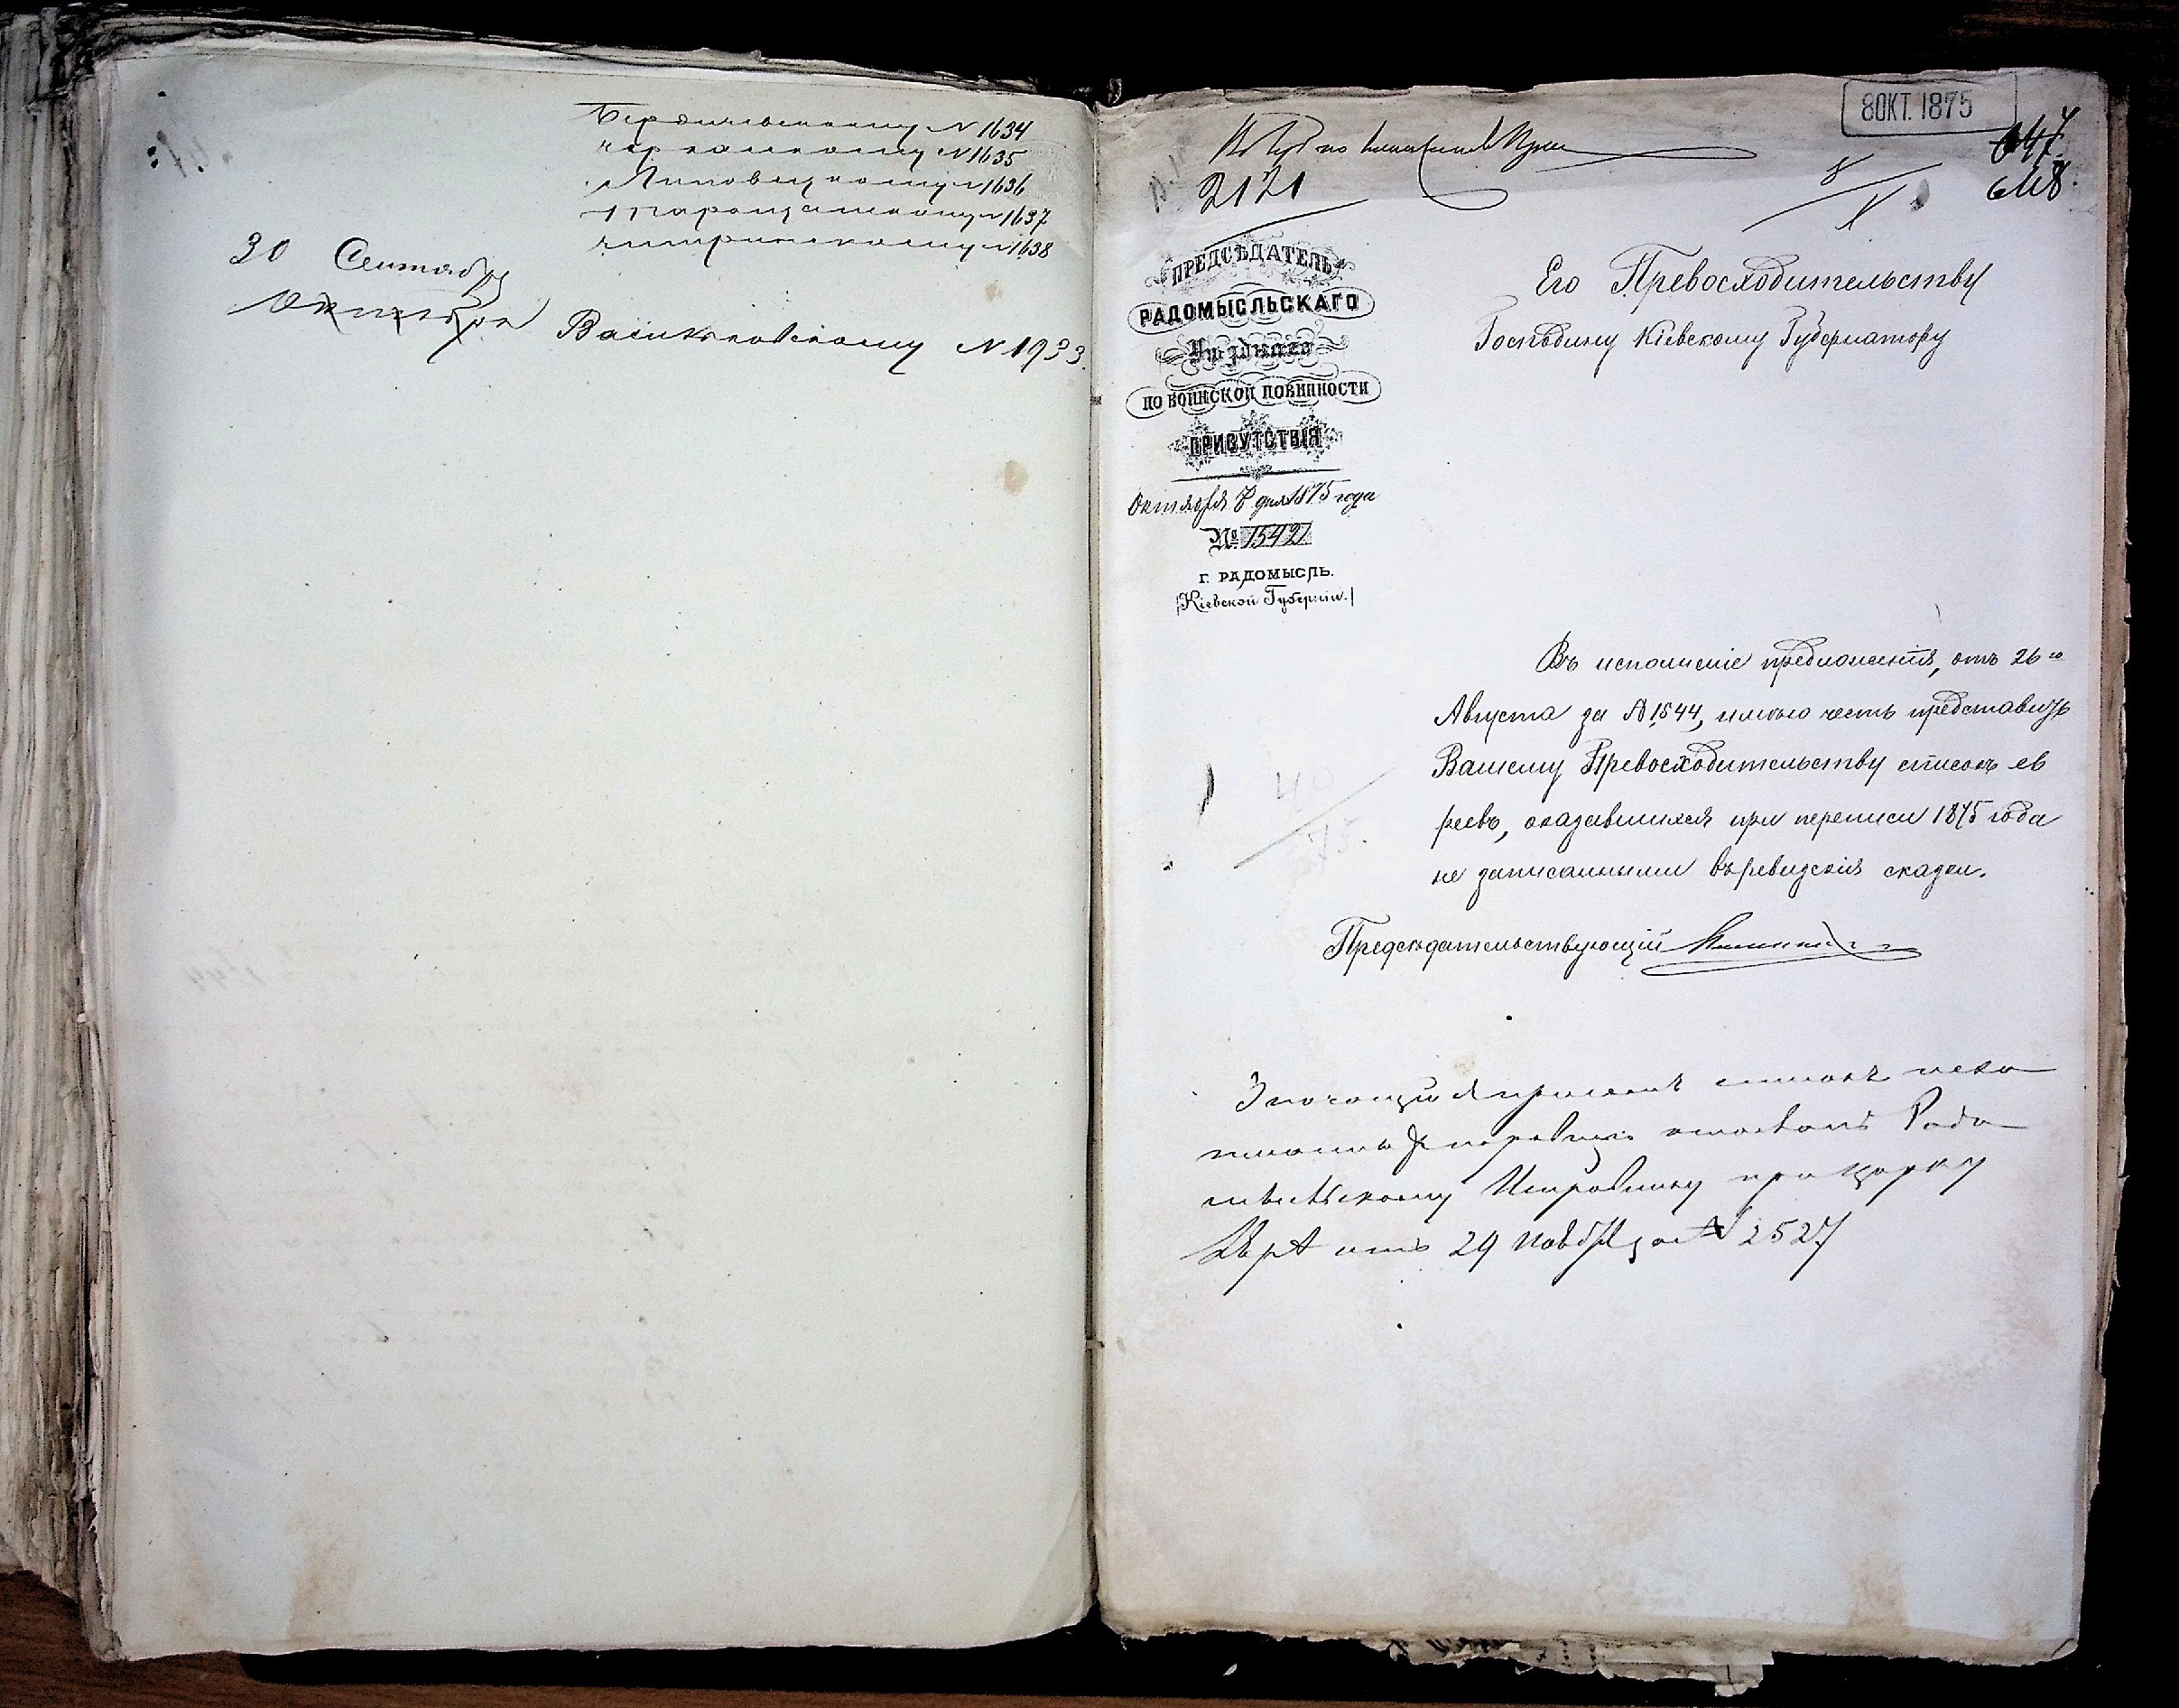 Бердичевскому № 1634
Черкасскому № 1635
Липовецкому № 1636
Таращанскому № 1637
Чигиринскому № 1638
30 Сентября
Октября
Васильковскому № 1933.
8 ОКТ. 1875
647
648.
2121
8
X
ПРЕДСѢДАТЕЛЬ
РАДОМЫСЛЬСКАГО
Уѣзднаго
ПО ВОИНСКОЙ ПОВИННОСТИ
ПРИСУТСТВІЯ
Октября 7 дня 1875 года
№ 1542
Г. РАДОМЫСЛЬ.
(Кіевской Губерніи.)
Его Превосходительству
Господину Кіевскому Губернатору
Въ исполненіе предложенія, отъ 26го
Августа за № 1544, имѣю честь представить
Вашему Превосходительству списокъ ев
реевъ, оказавшихся при переписи 1875 года
не записанными въ ревизскія сказки.
Предсѣдательствующій
списокъ
Радо
мысльскому Исправнику при
отъ 29 Ноября за № 2527